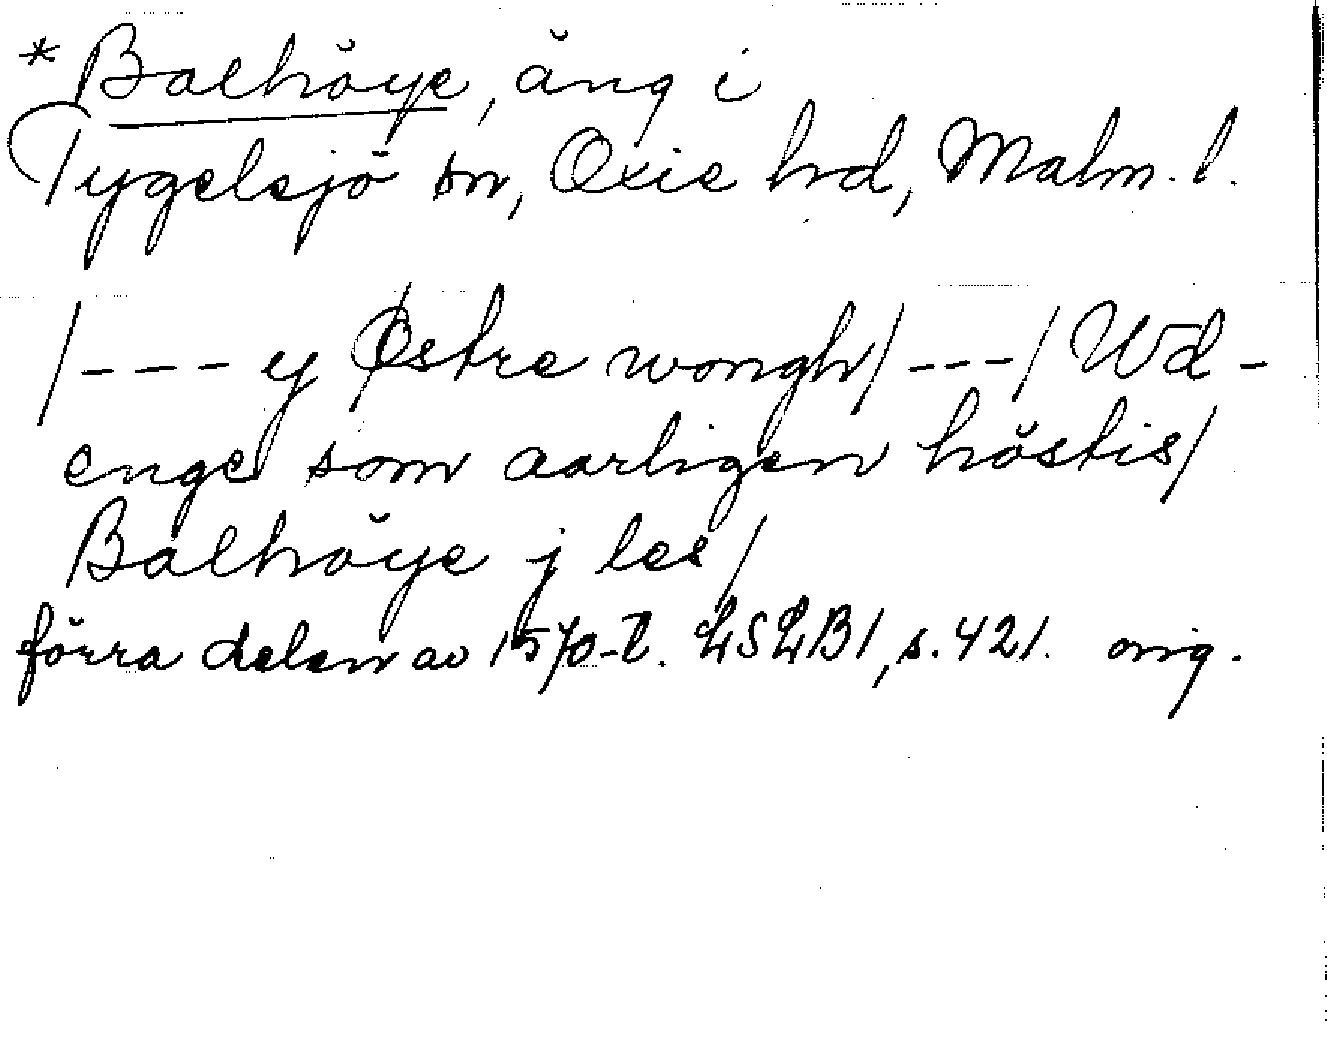 * Balhöye, äng i
Tygelsjö sn, Oxie hd, Malm. l.
/ --- ij Østre wongh / --- / Wd-
enge som aarligen höstis /
Balhöye j les /
förra delen av 1570-t. LSLB1, s. 421. orig.